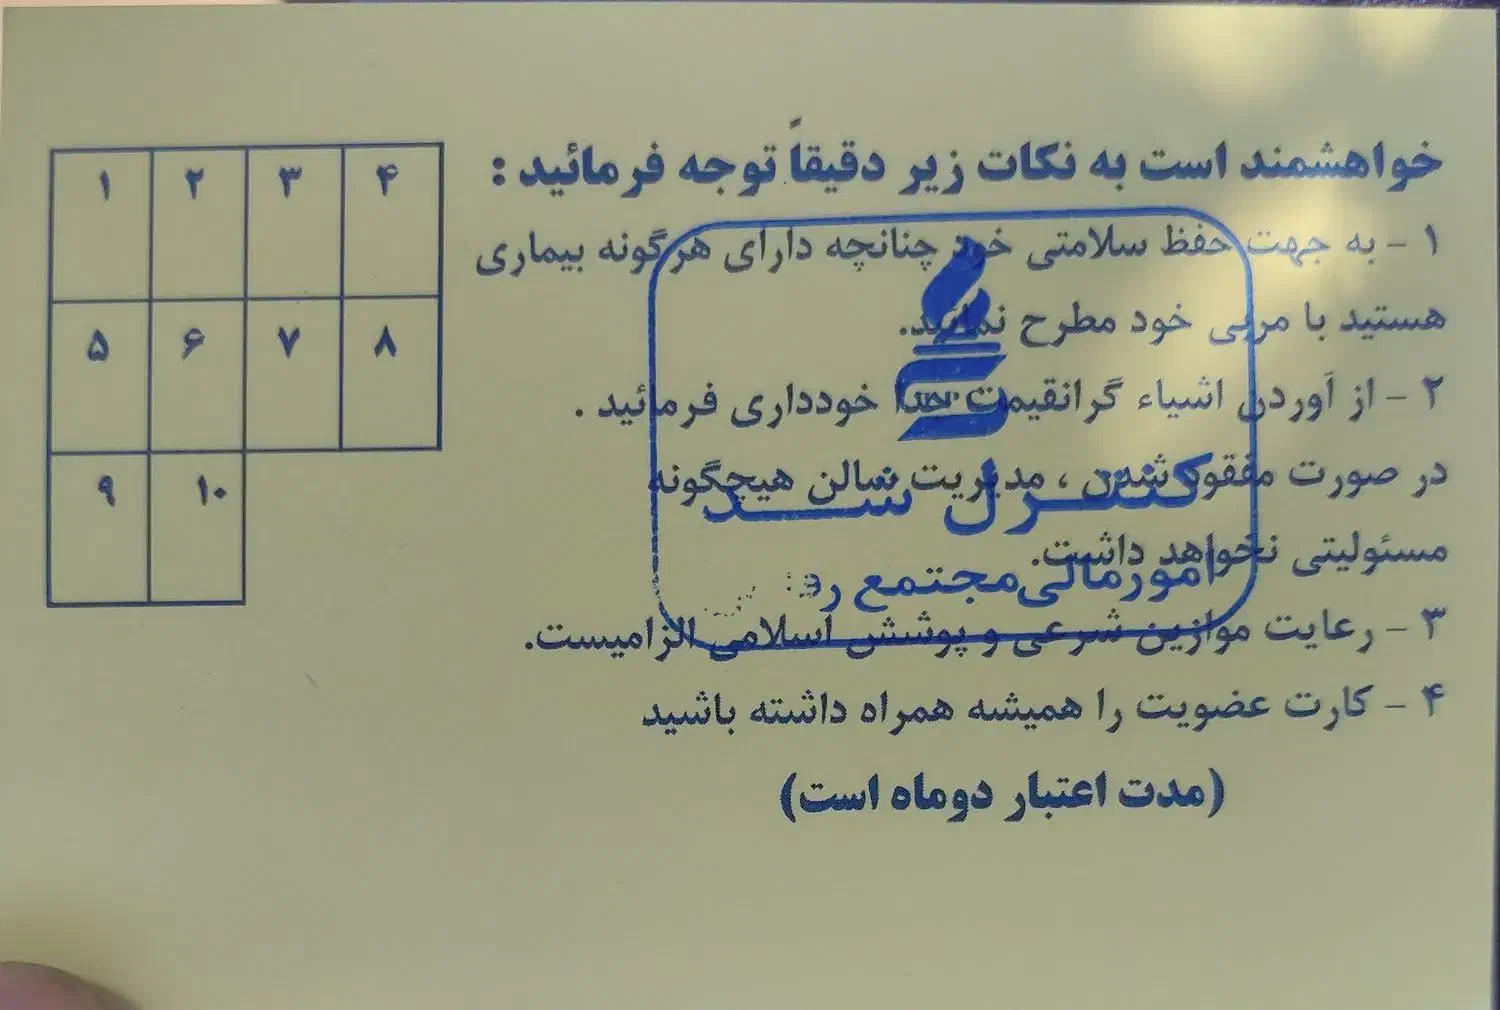 خواهشمند است به نکات زیر دقیقاً توجه فرمائید :
۱ - به جهت حفظ سلامتی خود چنانچه دارای هرگونه بیماری
هستید با مربی خود مطرح نمائید.
۲ - از آوردن اشیاء گرانقیمت جداً خودداری فرمائید .
در صورت مفقود شدن ، مدیریت سالن هیچگونه
مسئولیتی نخواهد داشت.
۳ - رعایت موازین شرعی و پوشش اسلامی الزامیست.
۴ - کارت عضویت را همیشه همراه داشته باشید
(مدت اعتبار دوماه است)
کنترل شد
امورمالی مجتمع
۱ ۲ ۳ ۴
۵ ۶ ۷ ۸
۹ ۱۰